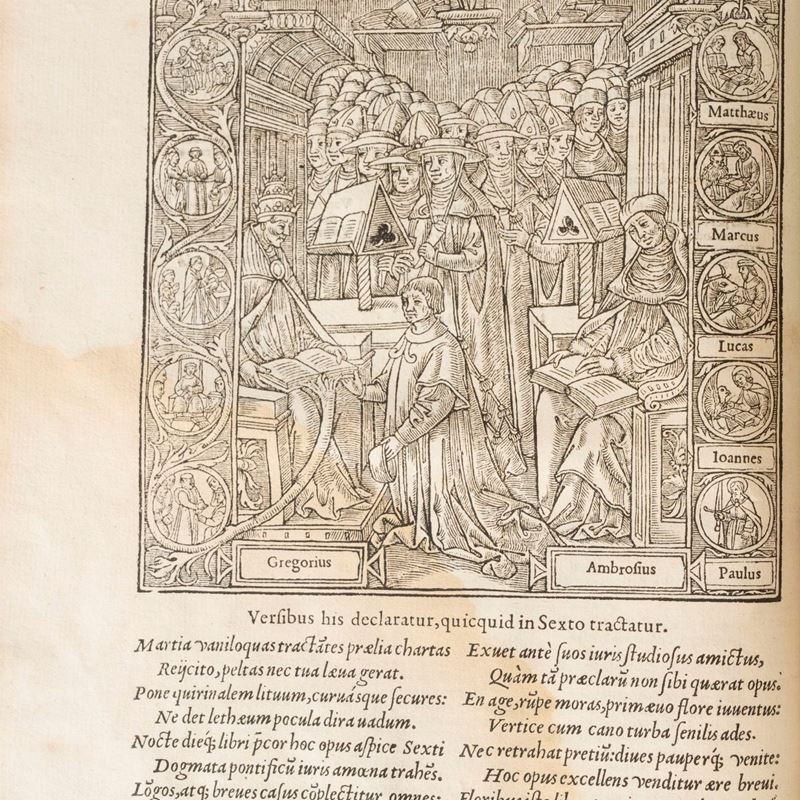 Matthæus
Marcus
Lucas
Ioannes
Paulus
Gregorius
Ambrosius
Versibus his declaratur, quicquid in Sexto tractatur.
Martia vaniloquas tractãtes prælia chartas
Reijcito, peltas nec tua læua gerat.
Pone quirinalem lituum, curuásque secures:
Ne det lethæum pocula dira uadum.
Nocte dieq; libri p̃cor hoc opus aspice Sexti
Dogmata pontificũ iuris amœna trahẽs.
Lõgos, atq; breues casus cõplectitur omnes:
Exuet antè suos iuris studiosus amictus,
Quàm tã præclarũ non sibi quærat opus.
En age, rũpe moras, primæuo flore iuuentus:
Vertice cum cano turba senilis ades.
Nec retrahat pretiũ: diues pauperq́; venite:
Hoc opus excellens venditur ære breui.